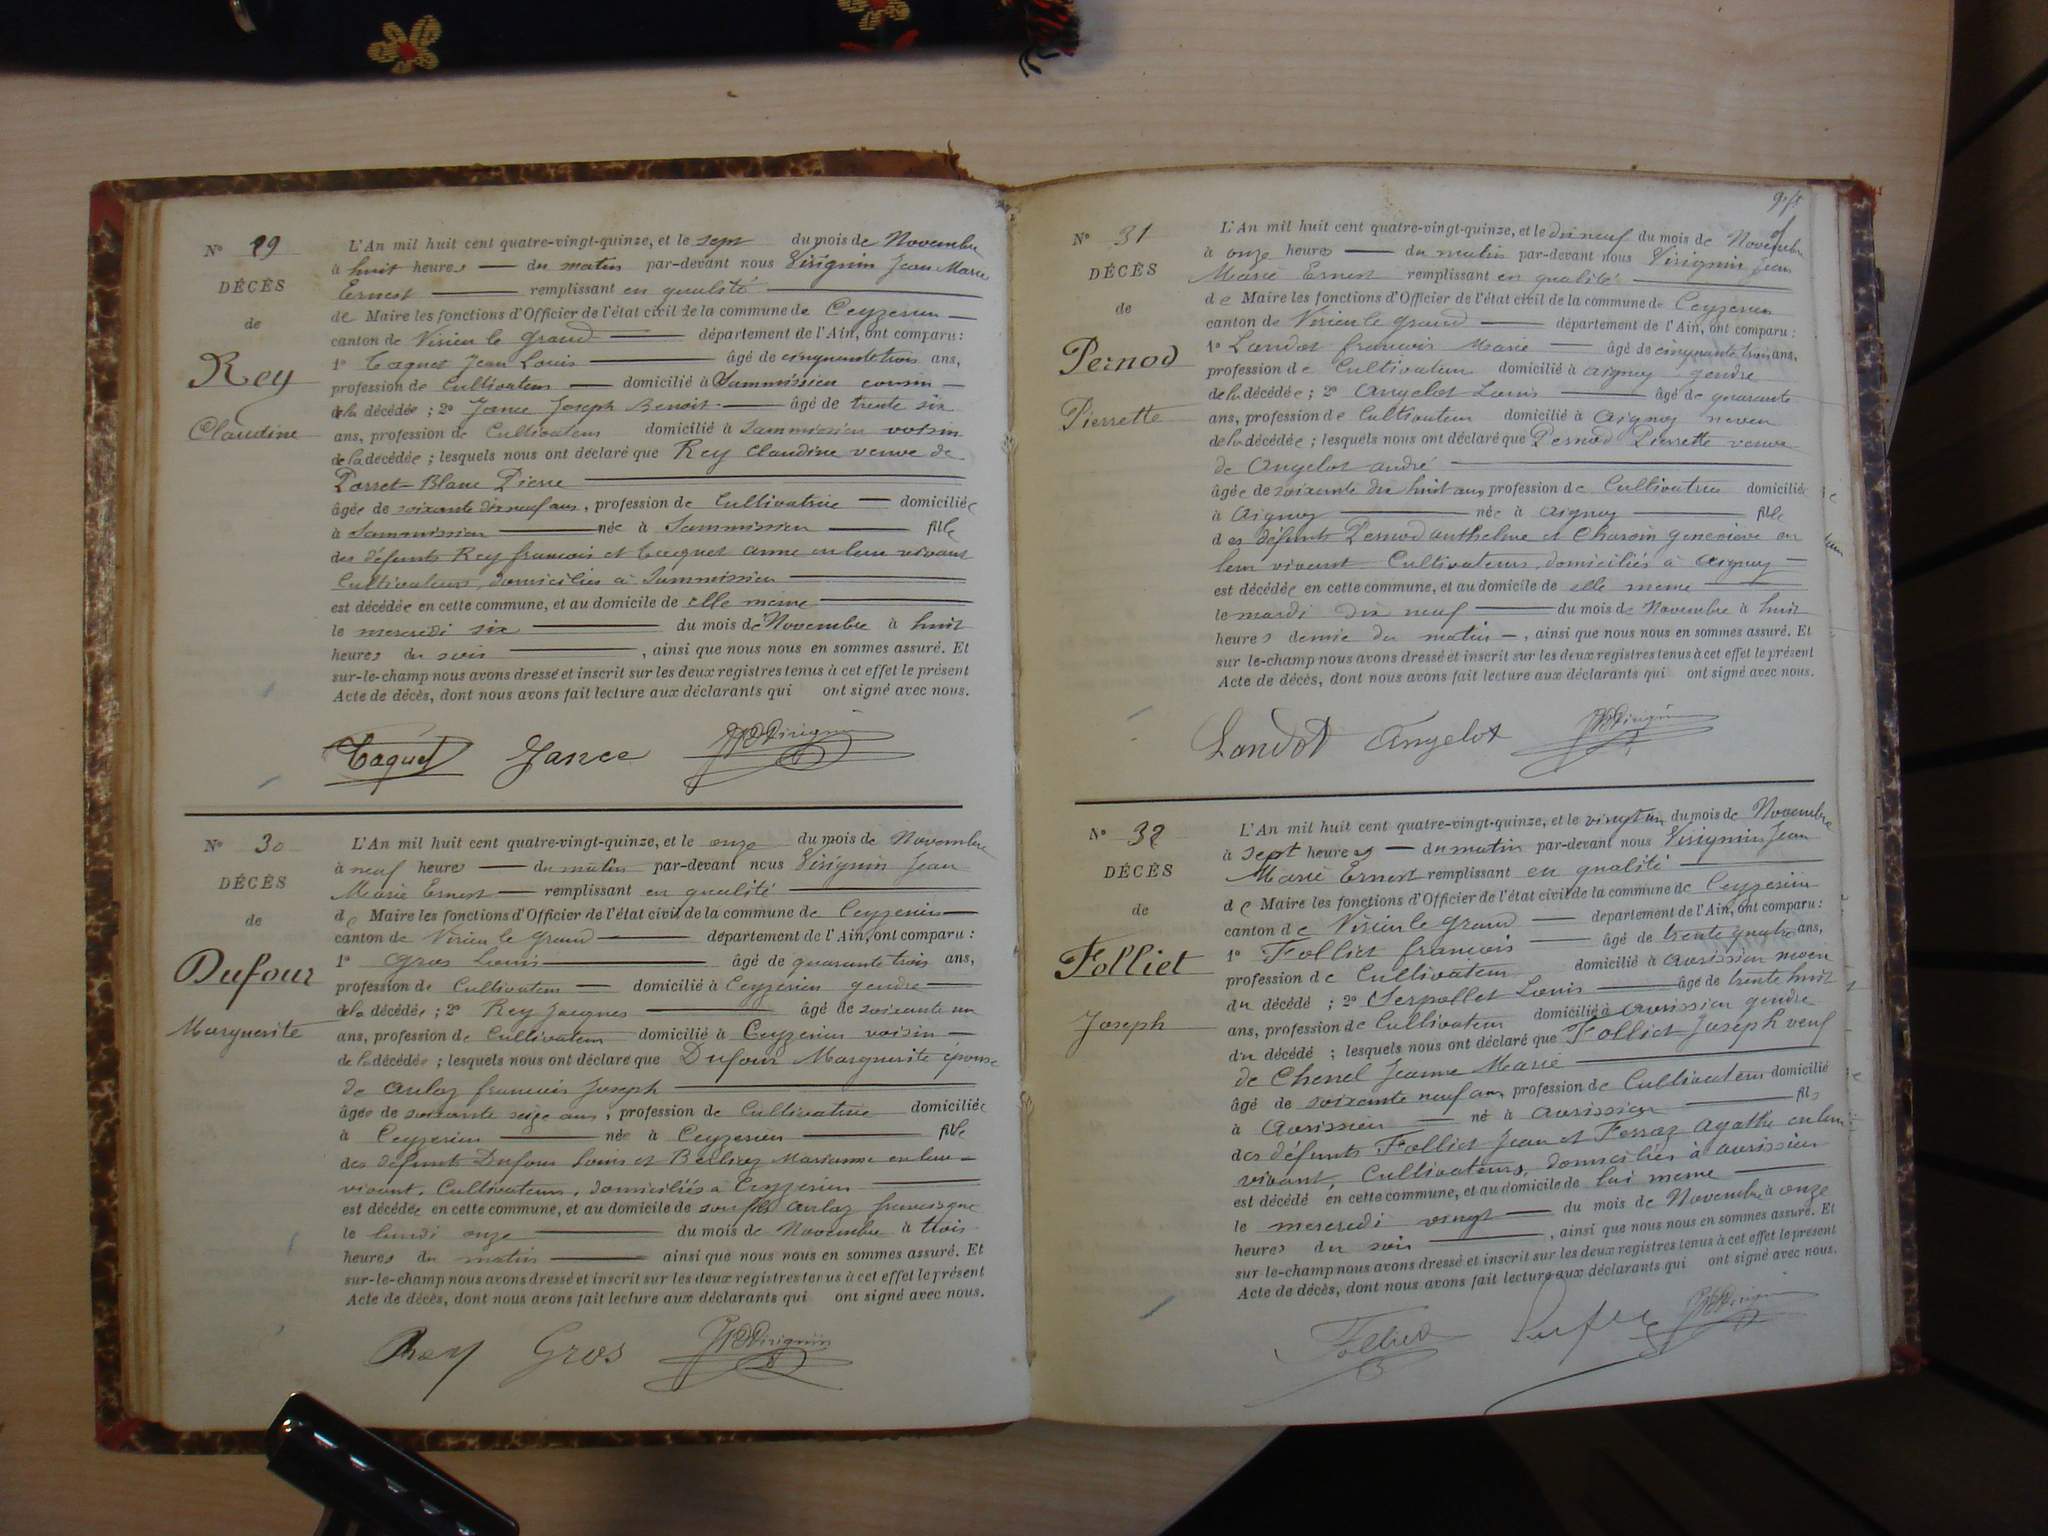 N° 29
DÉCÈS
de
Rey
Claudine
L'An mil huit cent quatre-vingt-quinze, et le sept du mois de Novembre
à huit heures — du matin par-devant nous Virignin Jean Marie
Ernest — remplissant en qualité —
de Maire les fonctions d'Officier de l'état civil de la commune de Ceyzerieu —
canton de Virieu le Grand — département de l'Ain, ont comparu :
1° Taquet Jean Louis — âgé de cinquante trois ans,
profession de Cultivateur — domicilié à Sammissieu cousin —
de la décédée ; 2° Jance Joseph Benoit — âgé de trente six
ans, profession de Cultivateur domicilié à Sammissieu voisin
de la décédée ; lesquels nous ont déclaré que Rey Claudine veuve de
Porret-Blanc Pierre —
âgée de soixante dix neuf ans, profession de Cultivatrice — domiciliée
à Sammissieu — née à Sammissieu — fille
des défunts Rey francois et Tacquet anne en leur vivant
Cultivateurs, domiciliés à Sammissieu —
est décédée en cette commune, et au domicile de elle meme —
le mercredi six — du mois de Novembre à huit
heures du soir — , ainsi que nous nous en sommes assuré. Et
sur-le-champ nous avons dressé et inscrit sur les deux registres tenus à cet effet le présent
Acte de décès, dont nous avons fait lecture aux déclarants qui ont signé avec nous.
Taquet Jance Virignin
N° 30
DÉCÈS
de
Dufour
Marguerite
L'An mil huit cent quatre-vingt-quinze, et le onze du mois de Novembre
à neuf heures — du matin par-devant nous Virignin Jean
Marie Ernest — remplissant en qualité —
de Maire les fonctions d'Officier de l'état civil de la commune de Ceyzerieu —
canton de Virieu le Grand — département de l'Ain, ont comparu :
1° Gros Louis — âgé de quarante trois ans,
profession de Cultivateur — domicilié à Ceyzerieu gendre —
de la décédée ; 2° Rey Jacques — âgé de soixante un
ans, profession de Cultivateur domicilié à Ceyzerieu voisin —
de la décédée ; lesquels nous ont déclaré que Dufour Marguerite épouse
de Aulaz francois Joseph —
âgée de soixante seize ans, profession de Cultivatrice domiciliée
à Ceyzerieu — née à Ceyzerieu — fille
des défunts Dufour Louis et Berlioz Marianne en leur —
vivant, Cultivateurs, domiciliés à Ceyzerieu —
est décédée en cette commune, et au domicile de son fils Aulaz francisque
le lundi onze — du mois de Novembre à trois
heures du matin — ainsi que nous nous en sommes assuré. Et
sur-le-champ nous avons dressé et inscrit sur les deux registres tenus à cet effet le présent
Acte de décès, dont nous avons fait lecture aux déclarants qui ont signé avec nous.
Rey Gros Virignin
N° 31
DÉCÈS
de
Pernod
Pierrette
L'An mil huit cent quatre-vingt-quinze, et le dix neuf du mois de Novembre
à onze heures — du matin par-devant nous Virignin Jean
Marie Ernest remplissant en qualité —
de Maire les fonctions d'Officier de l'état civil de la commune de Ceyzerieu
canton de Virieu le Grand — département de l'Ain, ont comparu :
1° Landot francois Marie — âgé de cinquante trois ans,
profession de Cultivateur domicilié à Aignoz gendre
de la décédée ; 2° Angelot Louis — âgé de quarante
ans, profession de Cultivateur domicilié à Aignoz neveu
de la décédée ; lesquels nous ont déclaré que Pernod Pierrette veuve
de Angelot andré —
âgée de soixante dix huit ans, profession de Cultivatrice domiciliée
à Aignoz — née à Aignoz — fille
des défunts Pernod anthelme et Charvin genevieve en
leur vivant Cultivateurs, domiciliés à Aignoz —
est décédée en cette commune, et au domicile de elle meme —
le mardi dix neuf — du mois de Novembre à huit
heures demie du matin —, ainsi que nous nous en sommes assuré. Et
sur le-champ nous avons dressé et inscrit sur les deux registres tenus à cet effet le présent
Acte de décès, dont nous avons fait lecture aux déclarants qui ont signé avec nous.
Landot Angelot Virignin
N° 32
DÉCÈS
de
Folliet
Joseph
L'An mil huit cent quatre-vingt-quinze, et le vingt un du mois de Novembre
à sept heures — du matin par-devant nous Virignin Jean
Marie Ernest remplissant en qualité —
de Maire les fonctions d'Officier de l'état civil de la commune de Ceyzerieu
canton de Virieu le Grand — département de l'Ain, ont comparu :
1° Folliet francois — âgé de trente quatre ans,
profession de Cultivateur domicilié à Avrissieu neveu
du décédé ; 2° Serpollet Louis — âgé de trente huit
ans, profession de Cultivateur domicilié à Avrissieu gendre
du décédé ; lesquels nous ont déclaré que Folliet Joseph veuf
de Chenel Jeanne Marie —
âgé de soixante neuf ans profession de Cultivateur domicilié
à Avrissieu — né à Avrissieu — fils
des défunts Folliet Jean et Ferraz Agathe en leur
vivant, Cultivateurs, domiciliés à Avrissieu
est décédé en cette commune, et au domicile de lui meme —
le mercredi vingt — du mois de Novembre à onze
heures du soir — , ainsi que nous nous en sommes assuré. Et
sur le-champ nous avons dressé et inscrit sur les deux registres tenus à cet effet le présent
Acte de décès, dont nous avons fait lecture aux déclarants qui ont signé avec nous.
Folliet Virignin